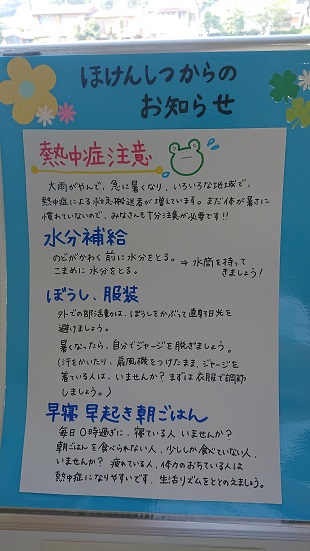 ほけんしつからの
お知らせ
熱中症注意
大雨がやんで、急に暑くなり、いろいろな地域で、
熱中症による救急搬送者が増えています。まだ体が暑さに
慣れていないので、みなさんも十分注意が必要です!!
水分補給
のどがかわく前に水分をとる。 ⇒ 水筒を持って
こまめに水分をとる。 きましょう!
ぼうし、服装
外での部活動は、ぼうしをかぶって直射日光を
避けましょう。
暑くなったら、自分でジャージを脱ぎましょう。
(汗をかいたり、扇風機をつけたまま、ジャージを
着ている人は、いませんか? まずは衣服で調節
しましょう。)
早寝 早起き 朝ごはん
毎日0時過ぎに、寝ている人 いませんか?
朝ごはんを食べられない人、少ししか食べていない人、
いませんか? 疲れている人、体力のおちている人は
熱中症になりやすいです。生活リズムをととのえましょう。